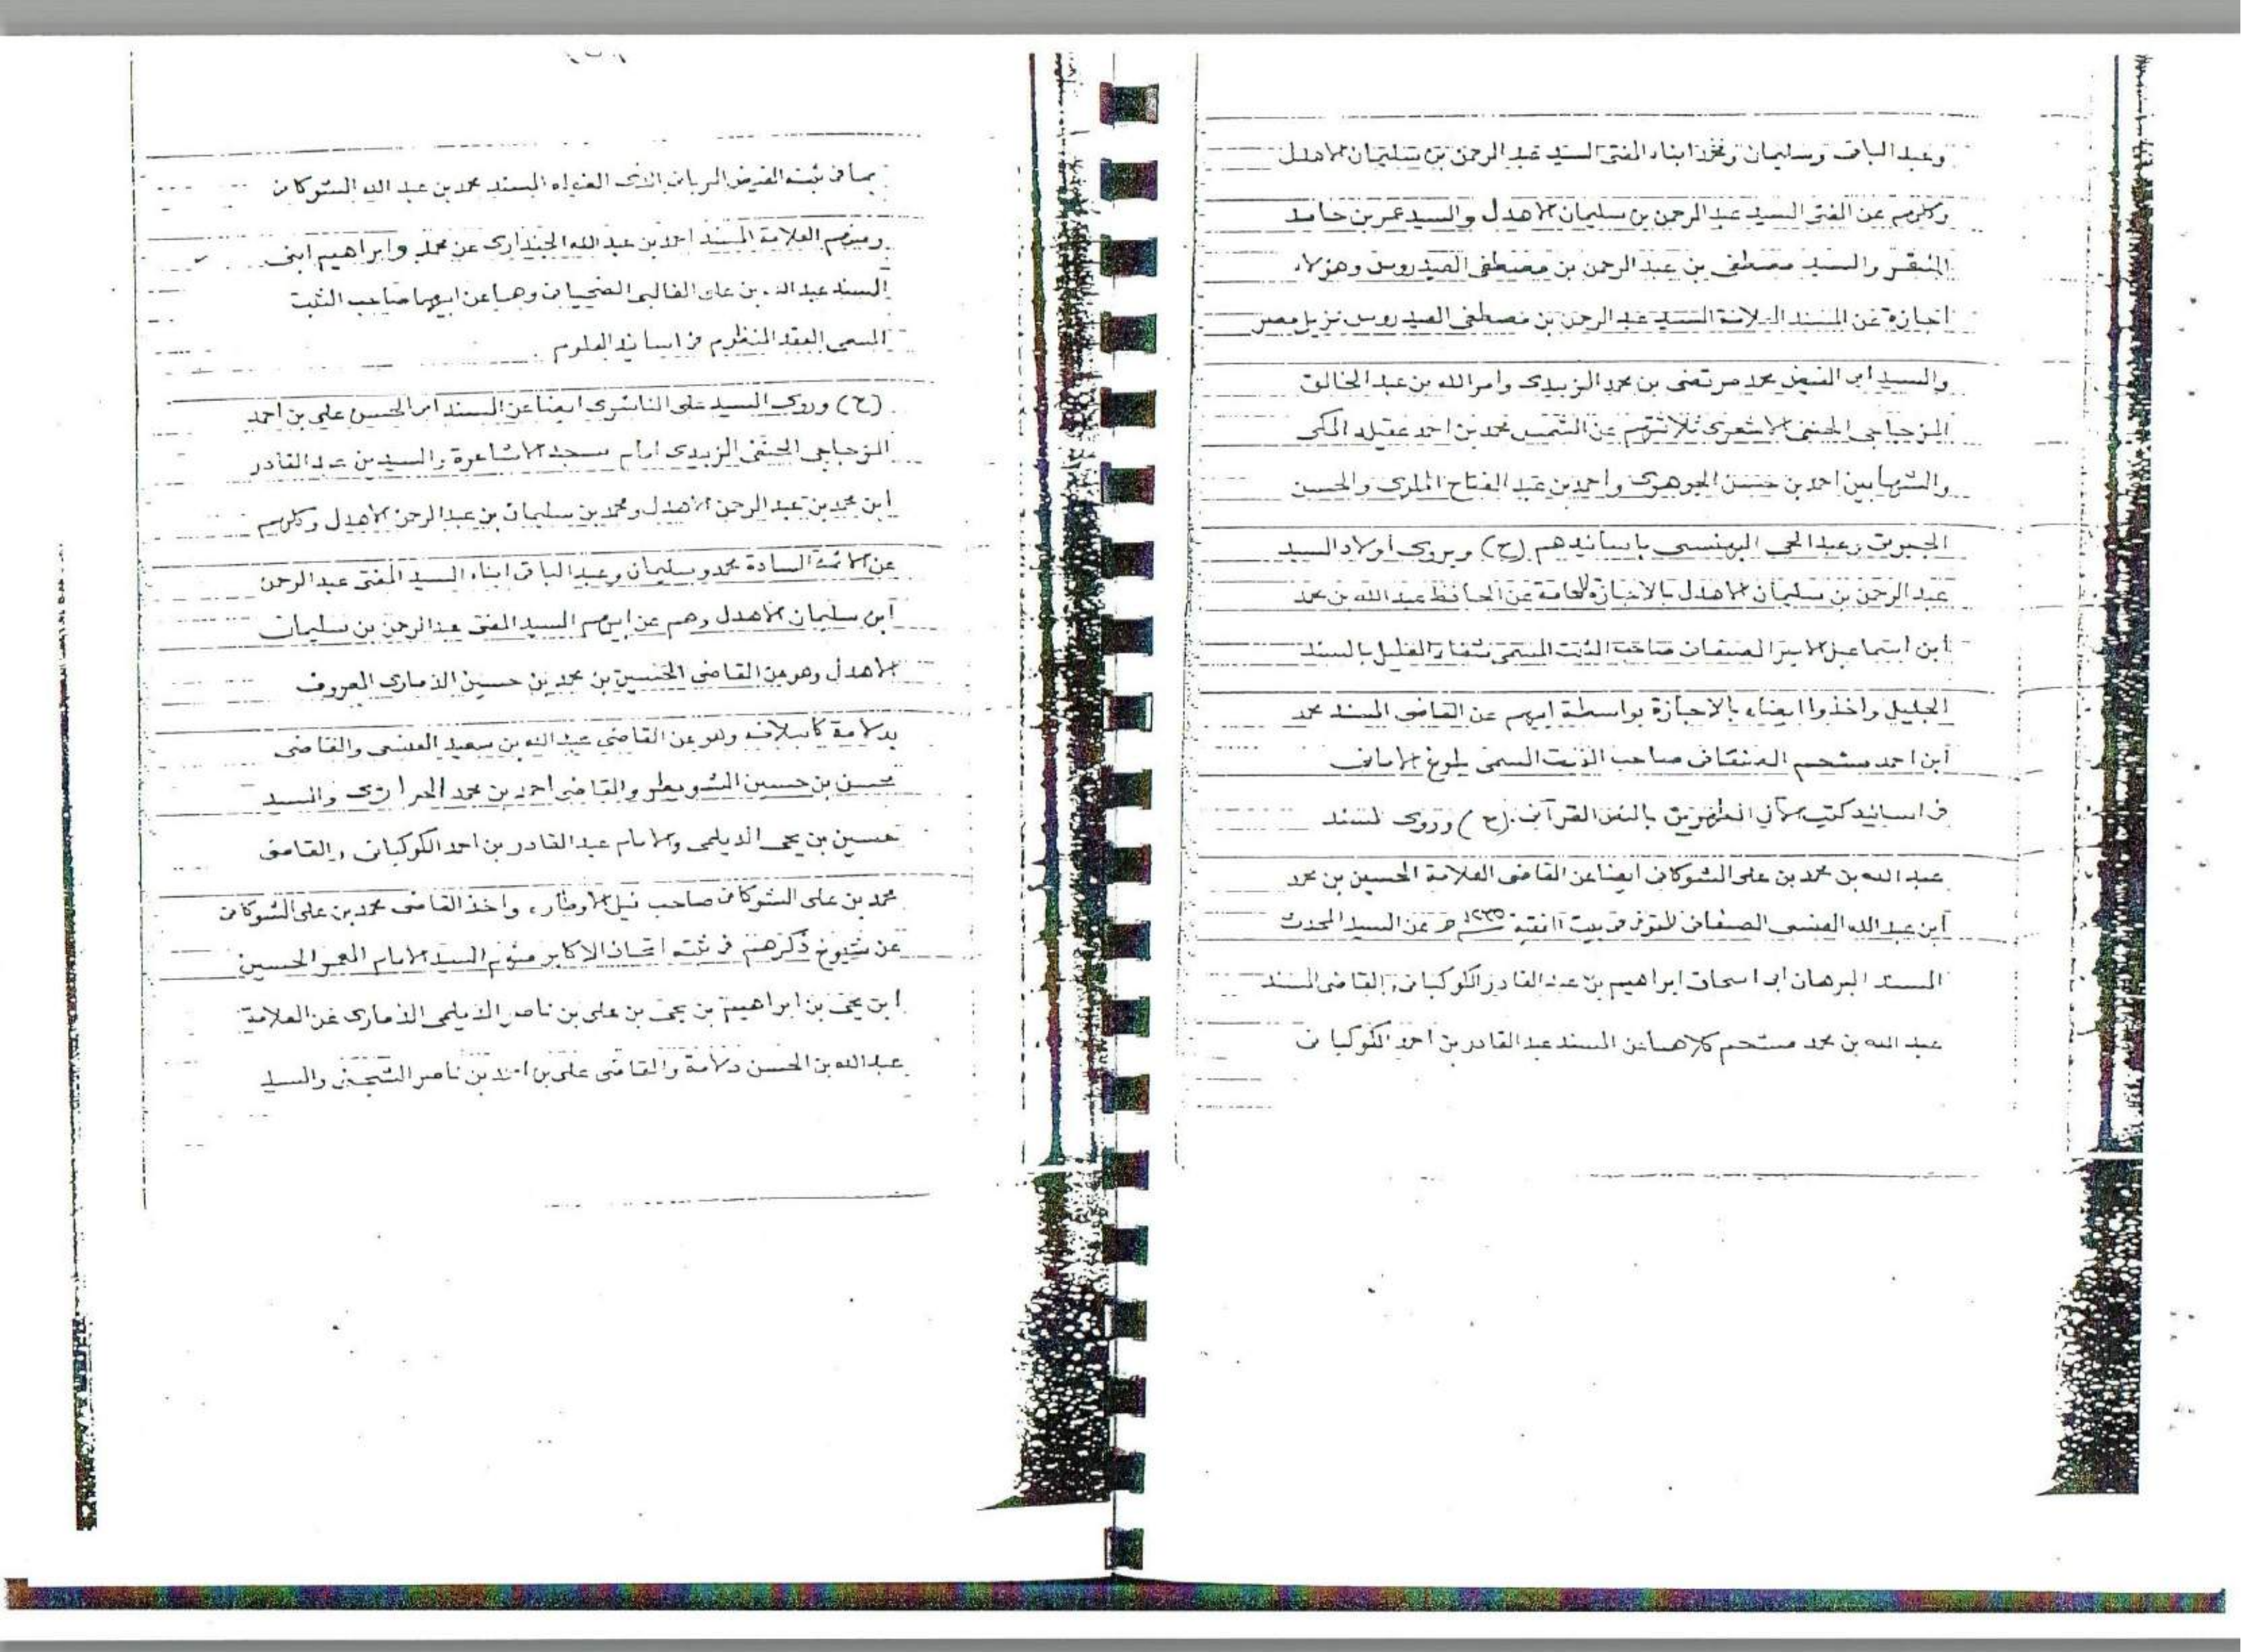 وعبد الباقي وسليمان ومحمد ابناء المفتى السيد عبد الرحمن بن سليمان الاهدل
وكلهم عن المفتى السيد عبد الرحمن بن سليمان الاهدل والسيد عمر بن حامد
المنقر والسيد مصطفى بن عبد الرحمن بن مصطفى العيدروس وهؤلاء
اجازة عن المسند العلامة السيد عبد الرحمن بن مصطفى العيدروس نزيل مصر
والسيد ابى الفيض محمد مرتضى بن محمد الزبيدى وامر الله بن عبد الخالق
المزجاجى الحنفى الاشعرى ثلاثتهم عن الشمس محمد بن احمد عقيله المكى
والشهابين احمد بن حسن الجوهرى واحمد بن عبد الفتاح الملوى والحسن
الجبرتى وعبد الحى البهنسى باسانيدهم (ح) ويروى اولاد السيد
عبد الرحمن بن سليمان الاهدل بالاجازة العامة عن الحافظ عبد الله بن محمد
ابن اسماعيل الامير الصنعانى صاحب الثبت المسمى شفاء العليل بالسند
الجليل واخذوا ايضاء بالاجازة بواسطة ابيهم عن القاضى المسند محمد
ابن احمد مشحم الصنعانى صاحب الثبت المسمى بلوغ الامانى
فى اسانيد كتب المطهرين بالنص القرآنى (ح) وروى المسند
عبد الله بن محمد بن على الشوكانى ايضا عن القاضى العلامة الحسين بن محمد
ابن عبد الله العنسى الصنعانى المتوفى فى بيت الفقيه ١٢٣٥ هـ عن السيد المحدث
المسند البرهان ابى اسحاق ابراهيم بن عبد القادر الكوكبانى والقاضى المسند
عبد الله بن محمد مشحم كلاهما عن المسند عبد القادر بن احمد الكوكبانى
بما فى ثبته الفيض الربانى الذى المسند محمد بن عبد الله الشوكانى
ومنهم العلامة المسند احمد بن عبد الله الجندارى عن محمد وابراهيم ابنى
المسند عبد الله بن على الغالبى الضحيانى وهما عن ابيهما صاحب الثبت
المسمى العقد المنظوم فى اسانيد العلوم .
(ح) وروى السيد على الناشرى ايضا عن المسند ابى الحسن على بن احمد
المزجاجى الحنفى الزبيدى امام مسجد الاشاعرة والسيد بن عبد القادر
ابن محمد بن عبد الرحمن الاهدل ومحمد بن سليمان بن عبد الرحمن الاهدل وكلهم
عن الائمة السادة محمد وسليمان وعبد الباقى ابناء السيد المفتى عبد الرحمن
ابن سليمان الاهدل وهم عن ابيهم السيد المفتى عبد الرحمن بن سليمان
الاهدل وهو عن القاضى الحسين بن محمد بن حسين الذمارى المعروف
بدلامة كاسلافه وهو عن القاضى عبد الله بن سعيد العنسى والقاضى
محسن بن حسين الشويطر والقاضى احمد بن محمد الحرازى والسيد
حسين بن يحى الديلمى والامام عبد القادر بن احمد الكوكبانى والقاضى
محمد بن على الشوكانى صاحب نيل الاوطار، واخذ القاضى محمد بن على الشوكانى
عن شيوخ ذكرهم فى ثبته اتحاف الاكابر منهم السيد الامام المعمر الحسين
ابن يحى بن ابراهيم بن يحى بن على بن ناصر الديلمى الذمارى عن العلامة
عبد الله بن الحسن دلامة والقاضى على بن احمد بن ناصر الشجنى والسيد